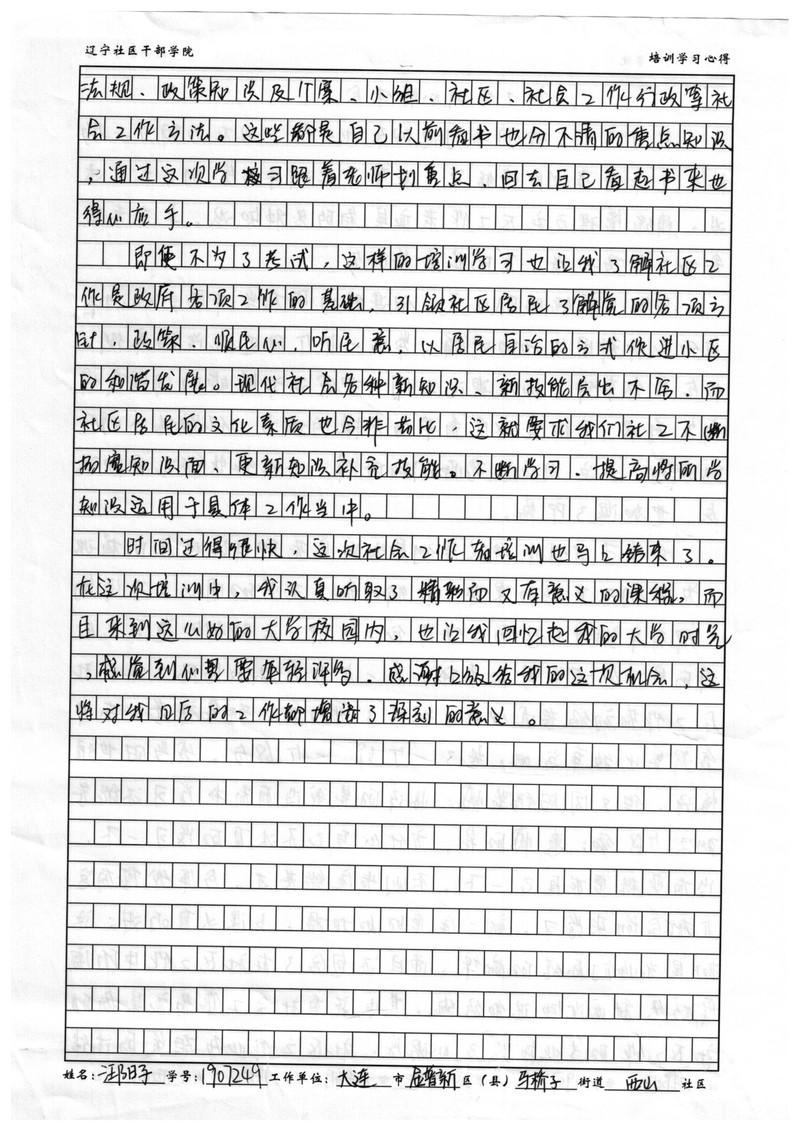 辽宁社区干部学院
培训学习心得
法规、政策知识及个案、小组、社区、社会工作行政等社
会工作方法。这些都是自己以前看书也分不清的重点知识
,通过这次学校习跟着老师划重点,回去自己看起书来也
得心应手。
即使不为了考试,这样的培训学习也让我了解社区工
作是政府各项工作的基础,引领社区居民了解党的各项方
针、政策、顺民心,听民意,以居民自治的方式促进小区
的和谐发展。现代社会各种新知识、新技能层出不穷,而
社区居民的文化素质也今非昔比,这就要求我们社工不断
拓宽知识面、更新知识补充技能。不断学习、提高将所学
知识运用于具体工作当中。
时间过得很快,这次社会工作者培训也马上结束了。
在这次培训中,我认真听取了精彩而又有意义的课程。而
且来到这么好的大学校园内,也让我回忆起我的大学时光
,感觉到心里要年轻许多,感谢上级给我的这次机会,这
将对我日后的工作都增添了深刻的意义。
姓名: 学号:1907249 工作单位:大连 市 区(县) 街道 西山 社区